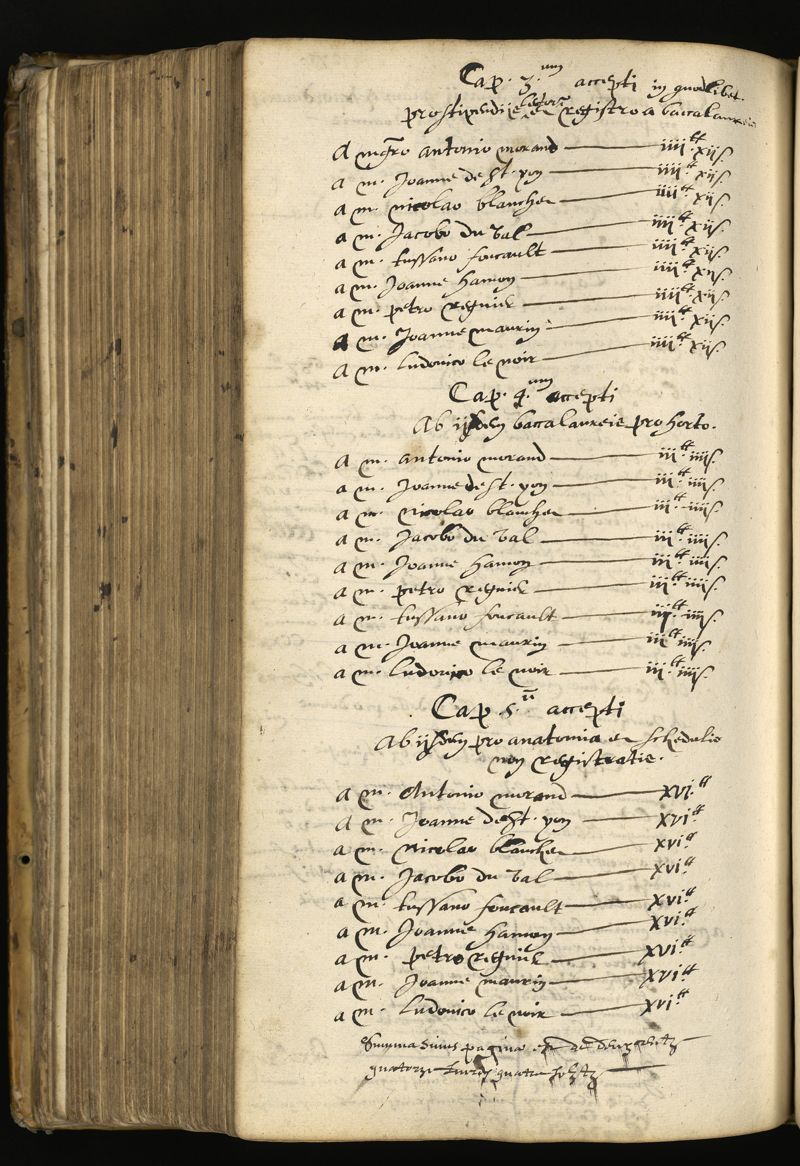 Cap. 3.um accepti in quodlibet.
pro stipendiis lector et registro a baccalaureis
A mgro antonio morand —— iiii.tt xii s.
a m. Joanne de St. yon —— iiii.tt xii s.
a m. nicolao blancher —— iiii.tt xii s.
a m. Jacobo du Val —— iiii.tt xii s.
a m. tussano foucault —— iiii.tt xii s.
a m. Joanne hamon —— iiii.tt xii s.
a m. petro regnier —— iiii.tt xii s.
a m. Joanne maurin —— iiii.tt xii s.
a m. ludovico le noir —— iiii.tt xii s.
Cap. 4.um accepti
Ab iisdem baccalaureis pro horto.
a m. antonio morand —— iii.tt iiii s.
a m. Joanne de St. yon —— iii.tt iiii s.
a m. nicolao blancher —— iii.tt iiii s.
a m. Jacobo du Val —— iii.tt iiii s.
a m. Joanne hamon —— iii.tt iiii s.
a m. petro regnier —— iii.tt iiii s.
a m. tussano foucault —— iii.tt iiii s.
a m. Joanne maurin —— iii.tt iiii s.
a m. ludovico le noir —— iii.tt iiii s.
Cap. 5.ū accepti
Ab iisdem pro anatomia et schedulis
non registratis.
a m. Antonio morand —— xvi.tt
a m. Joanne de St. yon —— xvi.tt
a m. nicolao blancher —— xvi.tt
a m. Jacobo du Val —— xvi.tt
a m. tussano foucault —— xvi.tt
a m. Joanne hamon —— xvi.tt
a m. petro regnier —— xvi.tt
a m. Joanne maurin —— xvi.tt
a m. ludovico le noir —— xvi.tt
Summa huius pagina est de deux centz
quatorze livres quatre solz